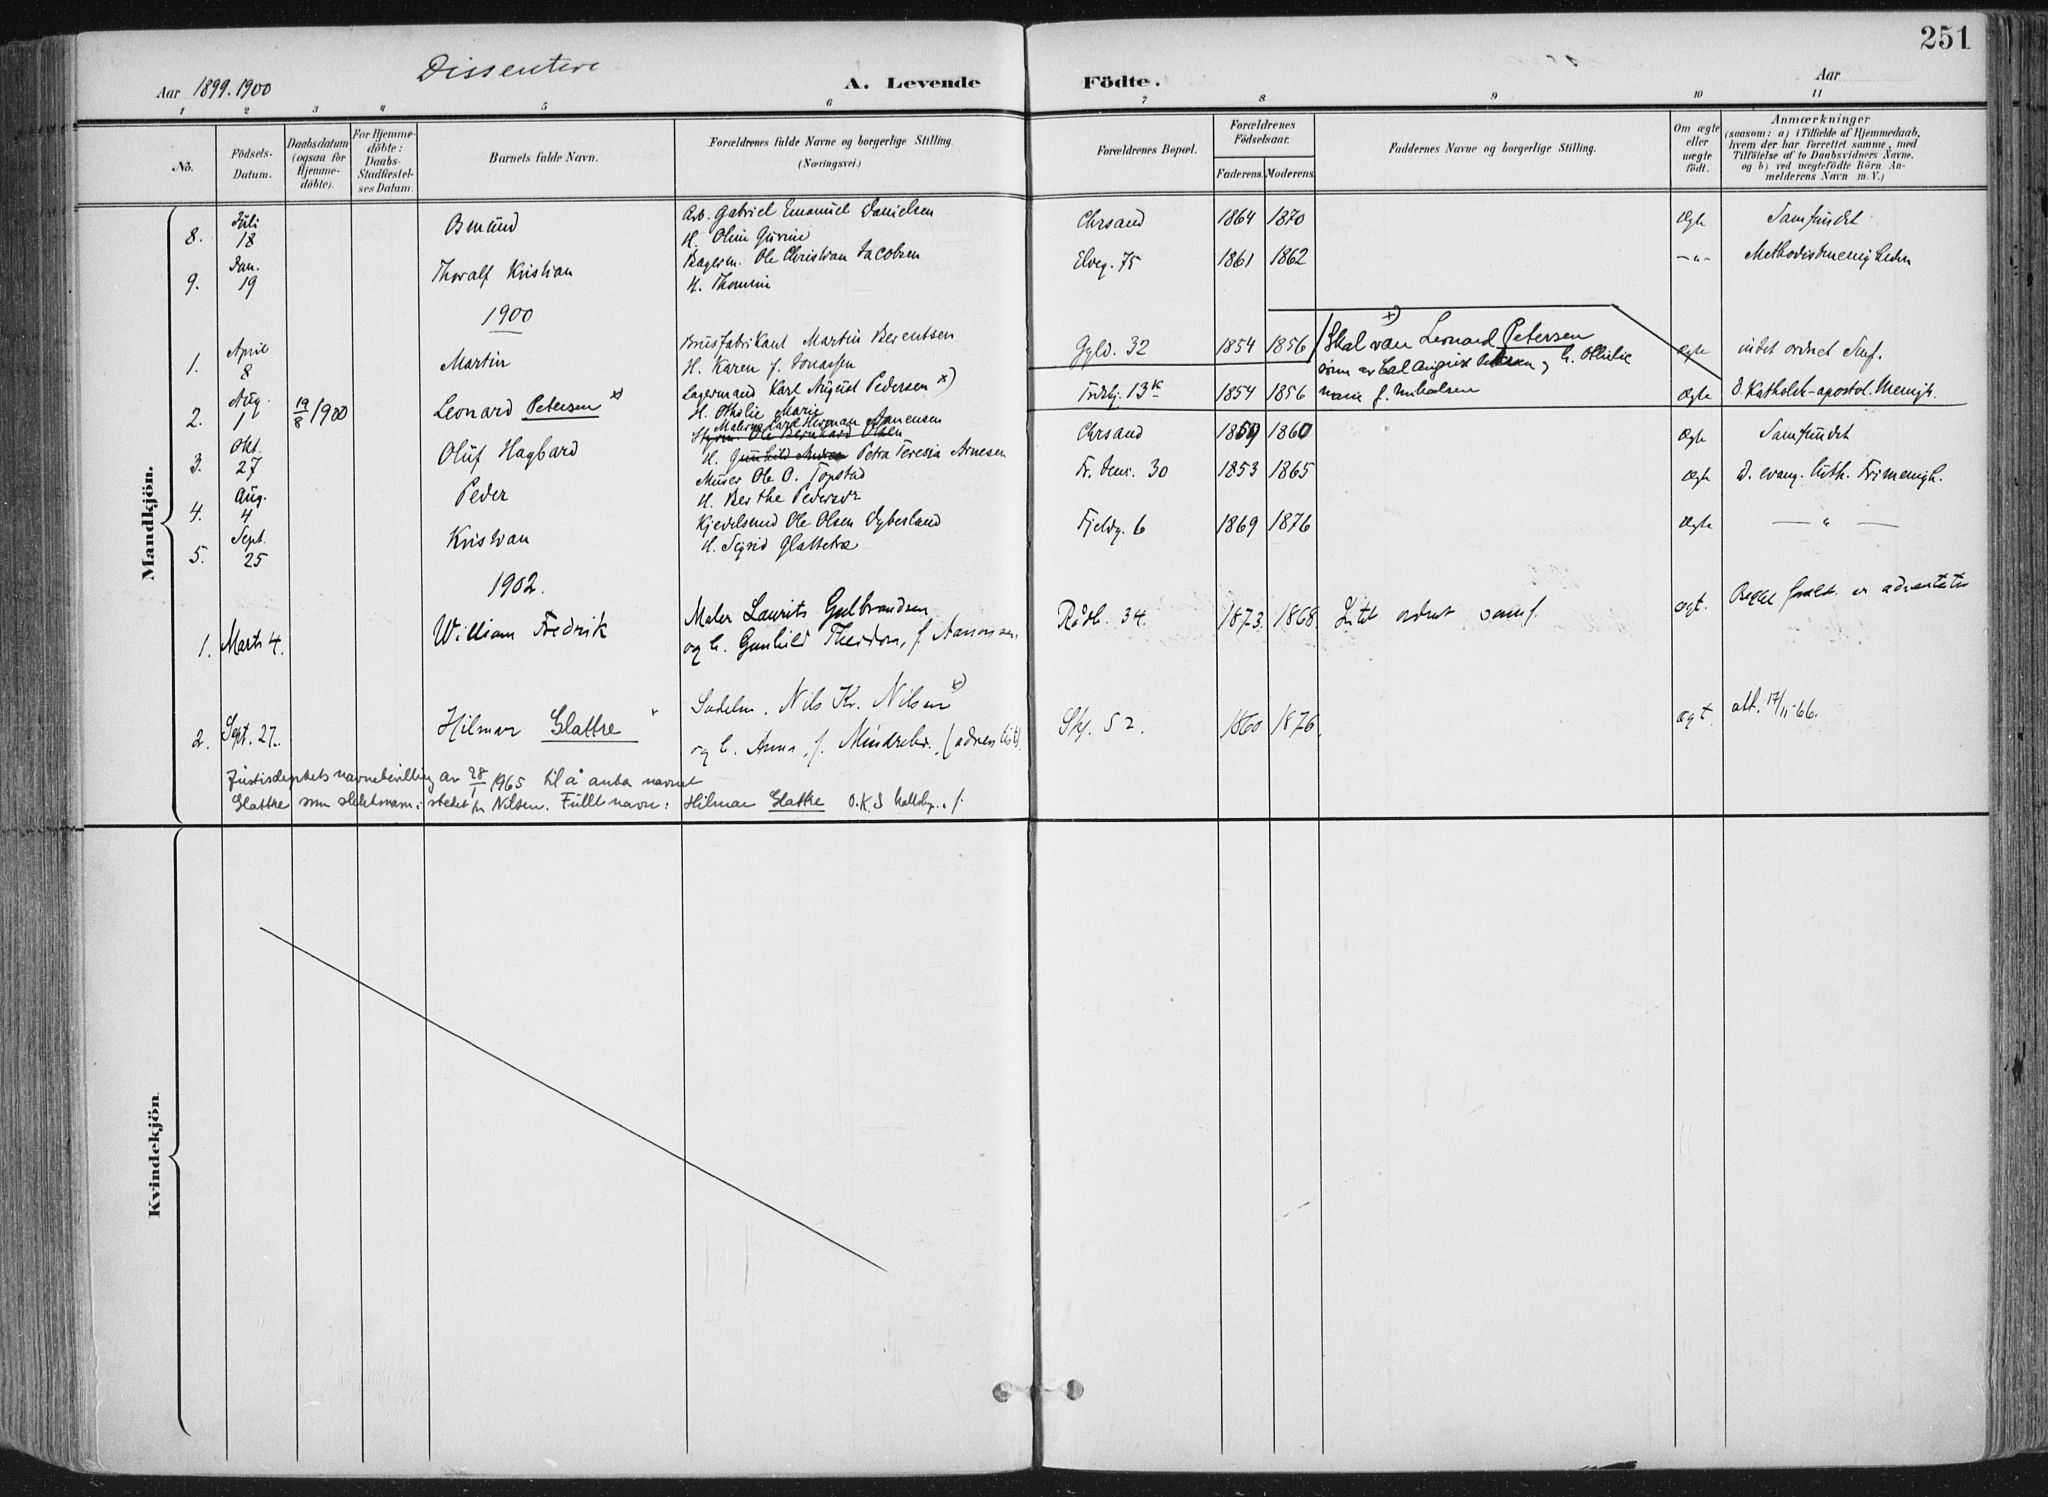 251
Dissentere
Aar 1899. 1900
A. Levende Födte.
Aar
1 2 3 4 5 6 7 8 9 10 11
No.
Födsels-Datum.
Daabsdatum (ogsaa for Hjemme-döbte).
For Hjemme-döbte: Daabs-Stadfæstel-ses Datum.
Barnets fulde Navn.
Forældrenes fulde Navne og borgerlige Stilling. (Næringsvei.)
Forældrenes Bopæl.
Forældrenes Födselsaar.
Faderens. Moderens.
Faddernes Navne og borgerlige Stilling.
Om ægte eller uægte födt.
Anmærkninger
(saasom: a) i Tilfælde af Hjemmedaab,
hvem der har forrettet samme, med
Tilföielse af to Daabsvidners Navne.
og b) ved uægtefödte Börn An-
melderens Navn m. V.)
Mandkjön.
8. Juli 18 Osmund Arb. Gabriel Emanuel Danielsen Chrsand 1864 1870 Ægte Samfundet
H. Oline Gurine
9. Jan. 19 Thoralf Kristian Bagerm. Ole Christian Jacobsen Elveg. 75 1861 1862 -"- Methodistmenigheden
H. Thomine
1900
1. April 8 Martin Brusfabrikant Martin Berentsen Gyld. 32 1854 1856 Ægte intet ordnet Smf.
H. Karen f. Jonassen
x)
Skal være Leonard Petersen
sønn av Carl August Petersen og h. Othilie
Marie f.
2. Aug. 1 19/8 1900 Leonard Petersen x) Lagermand Karl August Pedersen x) 13K 1854 1856 Ægte d. Katholsk-apostol. Menigh.
H. Otholie Marie
3. Okt. 27 Oluf Hagbard Malersv. Karl Herman Aanensen Chrsand 1859 1860 Ægte Samfundet
Styrm. Ole Bernhard Olsen
H. Gunhild Petra Teresia Arnesen
4. Aug. 4 Peder Murer Ole O. Topstad Fr. Jens. 30 1853 1865 Ægte d. evang. luth. Frimenigh.
H. Berthe Pedersdr
5. Sept. 25 Kristian Kjedelsmed Ole Olsen Dybesland Fjeldg. 6 1869 1876 Ægte — " —
H. Sigrid Glattetre
1902.
1. Marts 4. William Fredrik Maler Laurits Gulbrandsen Rådh. 34. 1873. 1868. Intet ordnet samf. ægt. Begge er adventister
og h. Gunhild Theodora, f. Aanonsen.
2. Sept. 27. Hilmar Glattre Sadelm. Nils Kr. Nilsen x) 52. 1860 1876. ægt. att. 17/11-66.
og h. Anna, f. (adventist).
Justisdeptets navnebevilling av 28/1 1965 til å anta navnet
Glattre som slektsnavn i stedet for Nilsen. Fullt navn: Hilmar Glattre O.K.S
Kvindekjön.